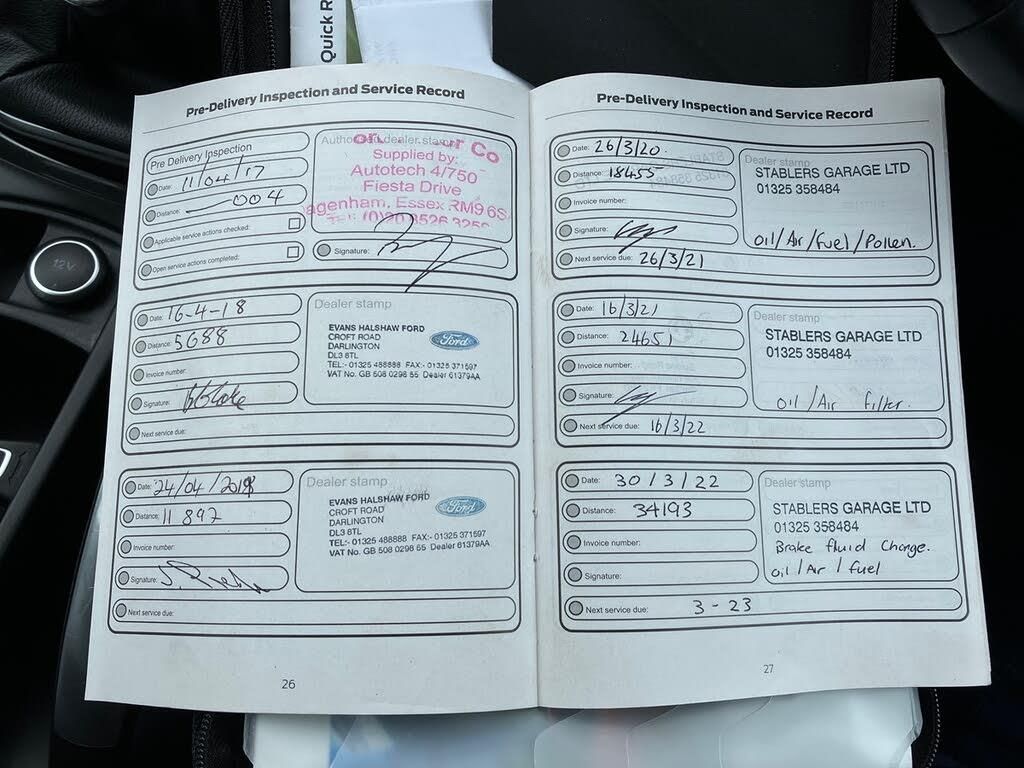 Quick R
Pre-Delivery Inspection and Service Record
Pre Delivery Inspection
Date: 11/04/17
Distance: 004
Applicable service actions checked:
Open service actions completed:
dealer stamp
Co
Supplied by:
Autotech 4/750
Fiesta Drive
agenham, Essex RM9 6S
Signature:
Date: 16-4-18
Distance: 5688
Invoice number:
Signature:
Next service due:
Dealer stamp
EVANS HALSHAW FORD
CROFT ROAD
DARLINGTON
DL3 8TL
TEL:- 01325 488888 FAX:- 01325 371597
VAT No. GB 508 0298 55 Dealer 61379AA
Ford
Date: 24/04/2019
Distance: 11 897
Invoice number:
Signature:
Next service due:
Dealer stamp
EVANS HALSHAW FORD
CROFT ROAD
DARLINGTON
DL3 8TL
TEL:- 01325 488888 FAX:- 01325 371597
VAT No. GB 508 0298 55 Dealer 61379AA
Ford
26
Pre-Delivery Inspection and Service Record
Date: 26/3/20.
Distance: 18455
Invoice number:
Signature:
Next service due: 26/3/21
Dealer stamp
STABLERS GARAGE LTD
01325 358484
oil/Air/Fuel/Pollen.
Date: 16/3/21
Distance: 24651
Invoice number:
Signature:
Next service due: 16/3/22
Dealer stamp
STABLERS GARAGE LTD
01325 358484
oil/Air filter.
Date: 30/3/22
Distance: 34193
Invoice number:
Signature:
Next service due: 3-23
Dealer stamp
STABLERS GARAGE LTD
01325 358484
Brake fluid Change.
oil/Air/fuel
27
12V